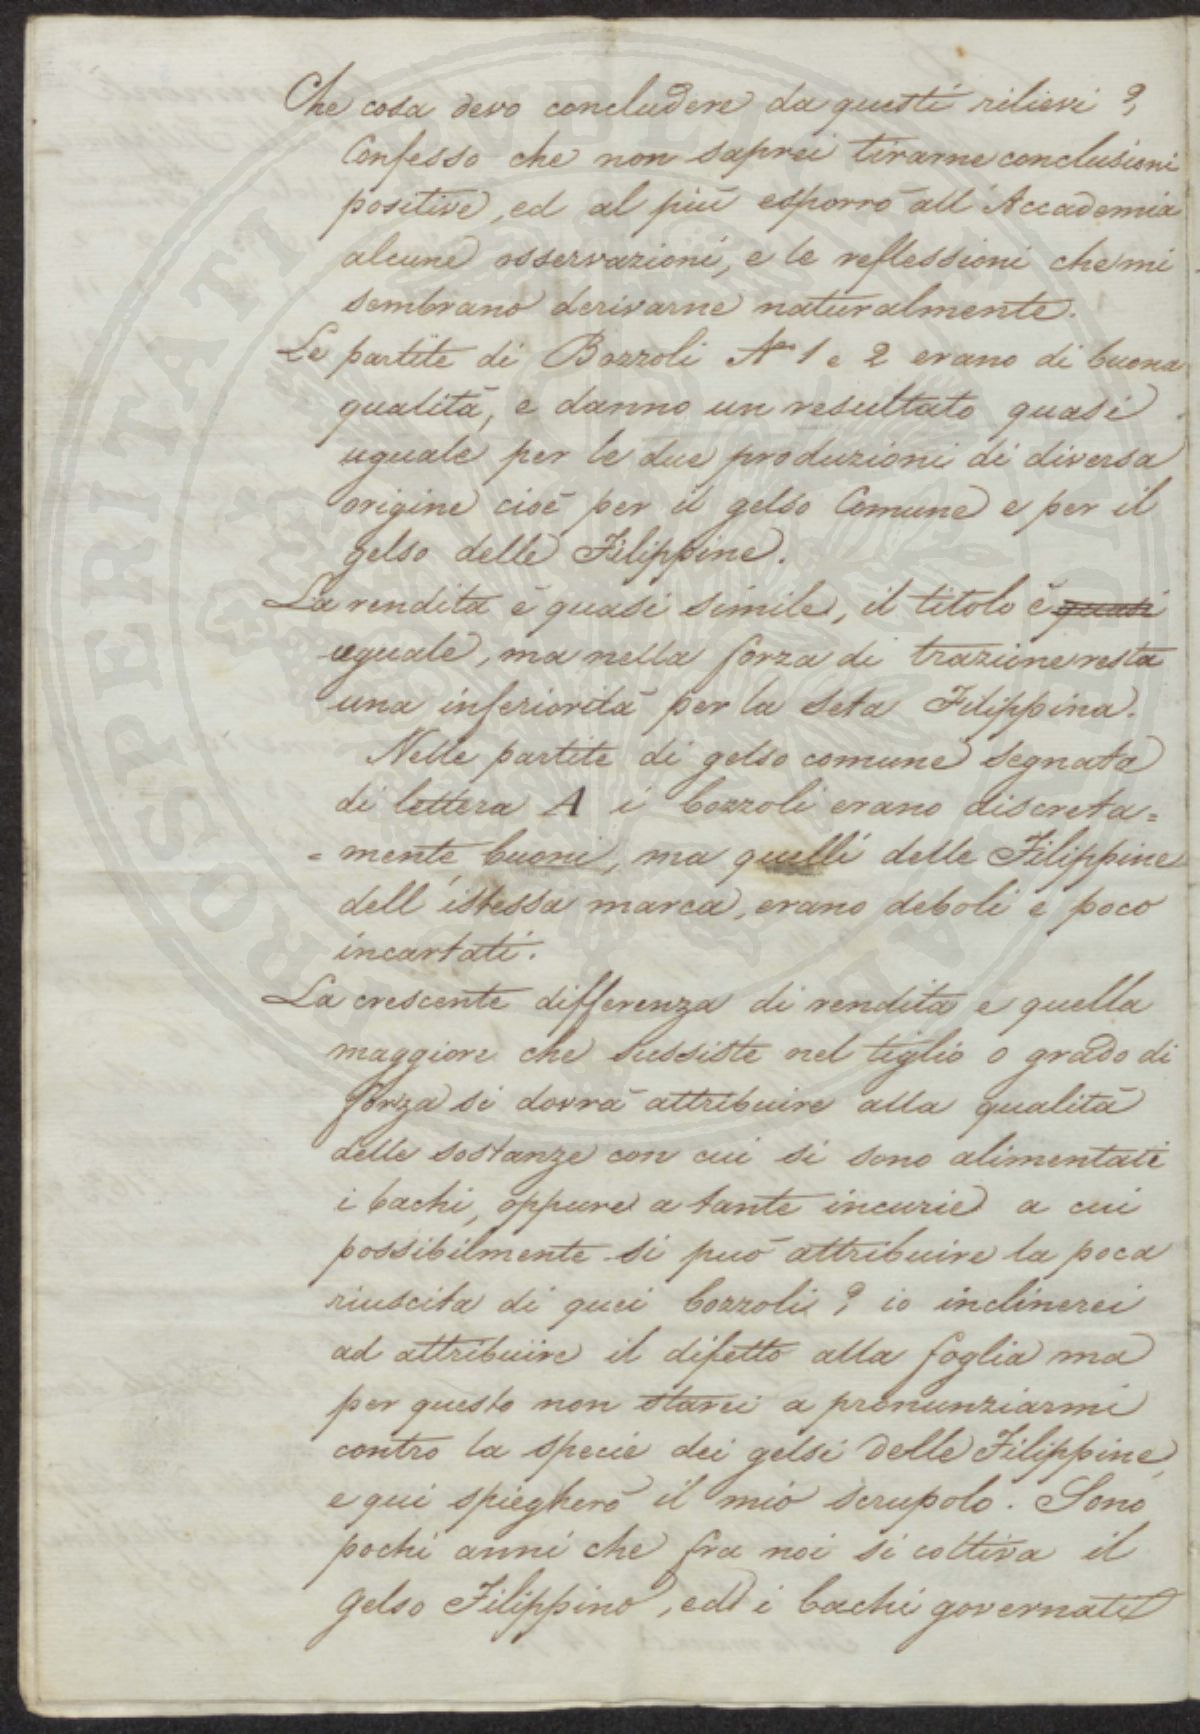 Che cosa devo concludere da questi rilievi?
Confesso che non saprei tirarne conclusioni
positive, ed al più esporrò all'Accademia
alcune osservazioni, e le reflessioni che mi
sembrano derivarne naturalmente.
Le partite di Bozzoli N° 1 e 2 erano di buona
qualità, e danno un resultato quasi
uguale per le due produzioni di diversa
origine cioè per il gelso Comune e per il
gelso delle Filippine.
La rendita è quasi simile, il titolo è quasi
uguale, ma nella forza di trazione resta
una inferiorità per la seta Filippina.
Nelle partite di gelso comune segnata
di lettera A i bozzoli erano discreta=
=mente buoni, ma quelli delle Filippine
dell'istessa marca, erano deboli e poco
incartati.
La crescente differenza di rendita e quella
maggiore che sussiste nel tiglio o grado di
forza si dovrà attribuire alla qualità
delle sostanze con cui si sono alimentati
i bachi, oppure a tante incurie a cui
possibilmente si può attribuire la poca
riuscita di quei bozzoli? io inclinerei
ad attribuire il difetto alla foglia ma
per questo non starei a pronunziarmi
contro la specie dei gelsi delle Filippine,
e qui spiegherò il mio scrupolo. Sono
pochi anni che fra noi si coltiva il
gelso Filippino, ed i bachi governati
PROSPERITATI PUBLICAE